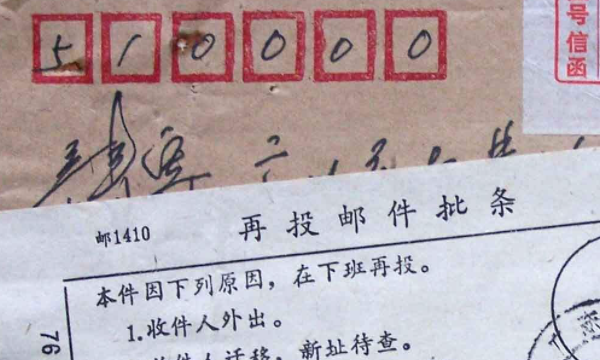 510000
号信函
邮1410 再投邮件批条
本件因下列原因，在下班再投。
1.收件人外出。
收件人迁移，新址待查。
76